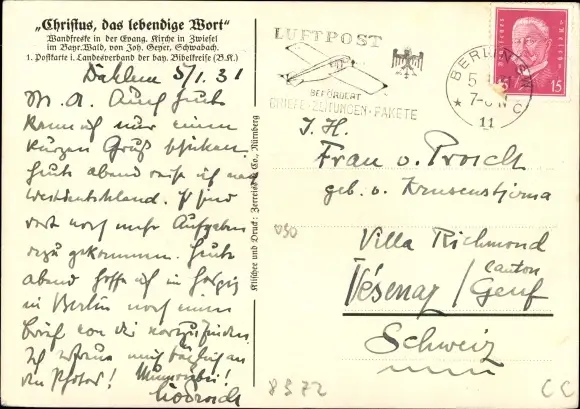 „Christus, das lebendige Wort“
Wandfreske in der Evang. Kirche in Zwiesel
im Bayr. Wald, von Joh. Geyer, Schwabach.
1. Postkarte i. Landesverband der bay. Bibelkreise (B.K.)
Dahlem 5/1.31
M. A. Auch heute
kann ich nur einen
kurzen Gruß schicken.
Heute abend reise ich nach
Westdeutschland. Es sind
dort noch mehr Aufgaben
dazu gekommen. Heute
abend hoffe ich in
in Berlin noch einen
Brief von dir vorzufinden.
Ich
den Photos!
Klischee und Druck: Zerreiss & Co., Nürnberg
LUFTPOST
BEFÖRDERT
BRIEFE·ZEITUNGEN·PAKETE
BERLIN SW
5.
7-8 N
* 11 C
15
I. H.
Frau v. Prosch
geb. v. Krusenstjerna
050
Villa Richmond
Vésenaz / Canton Genf
Schweiz
8372
CC